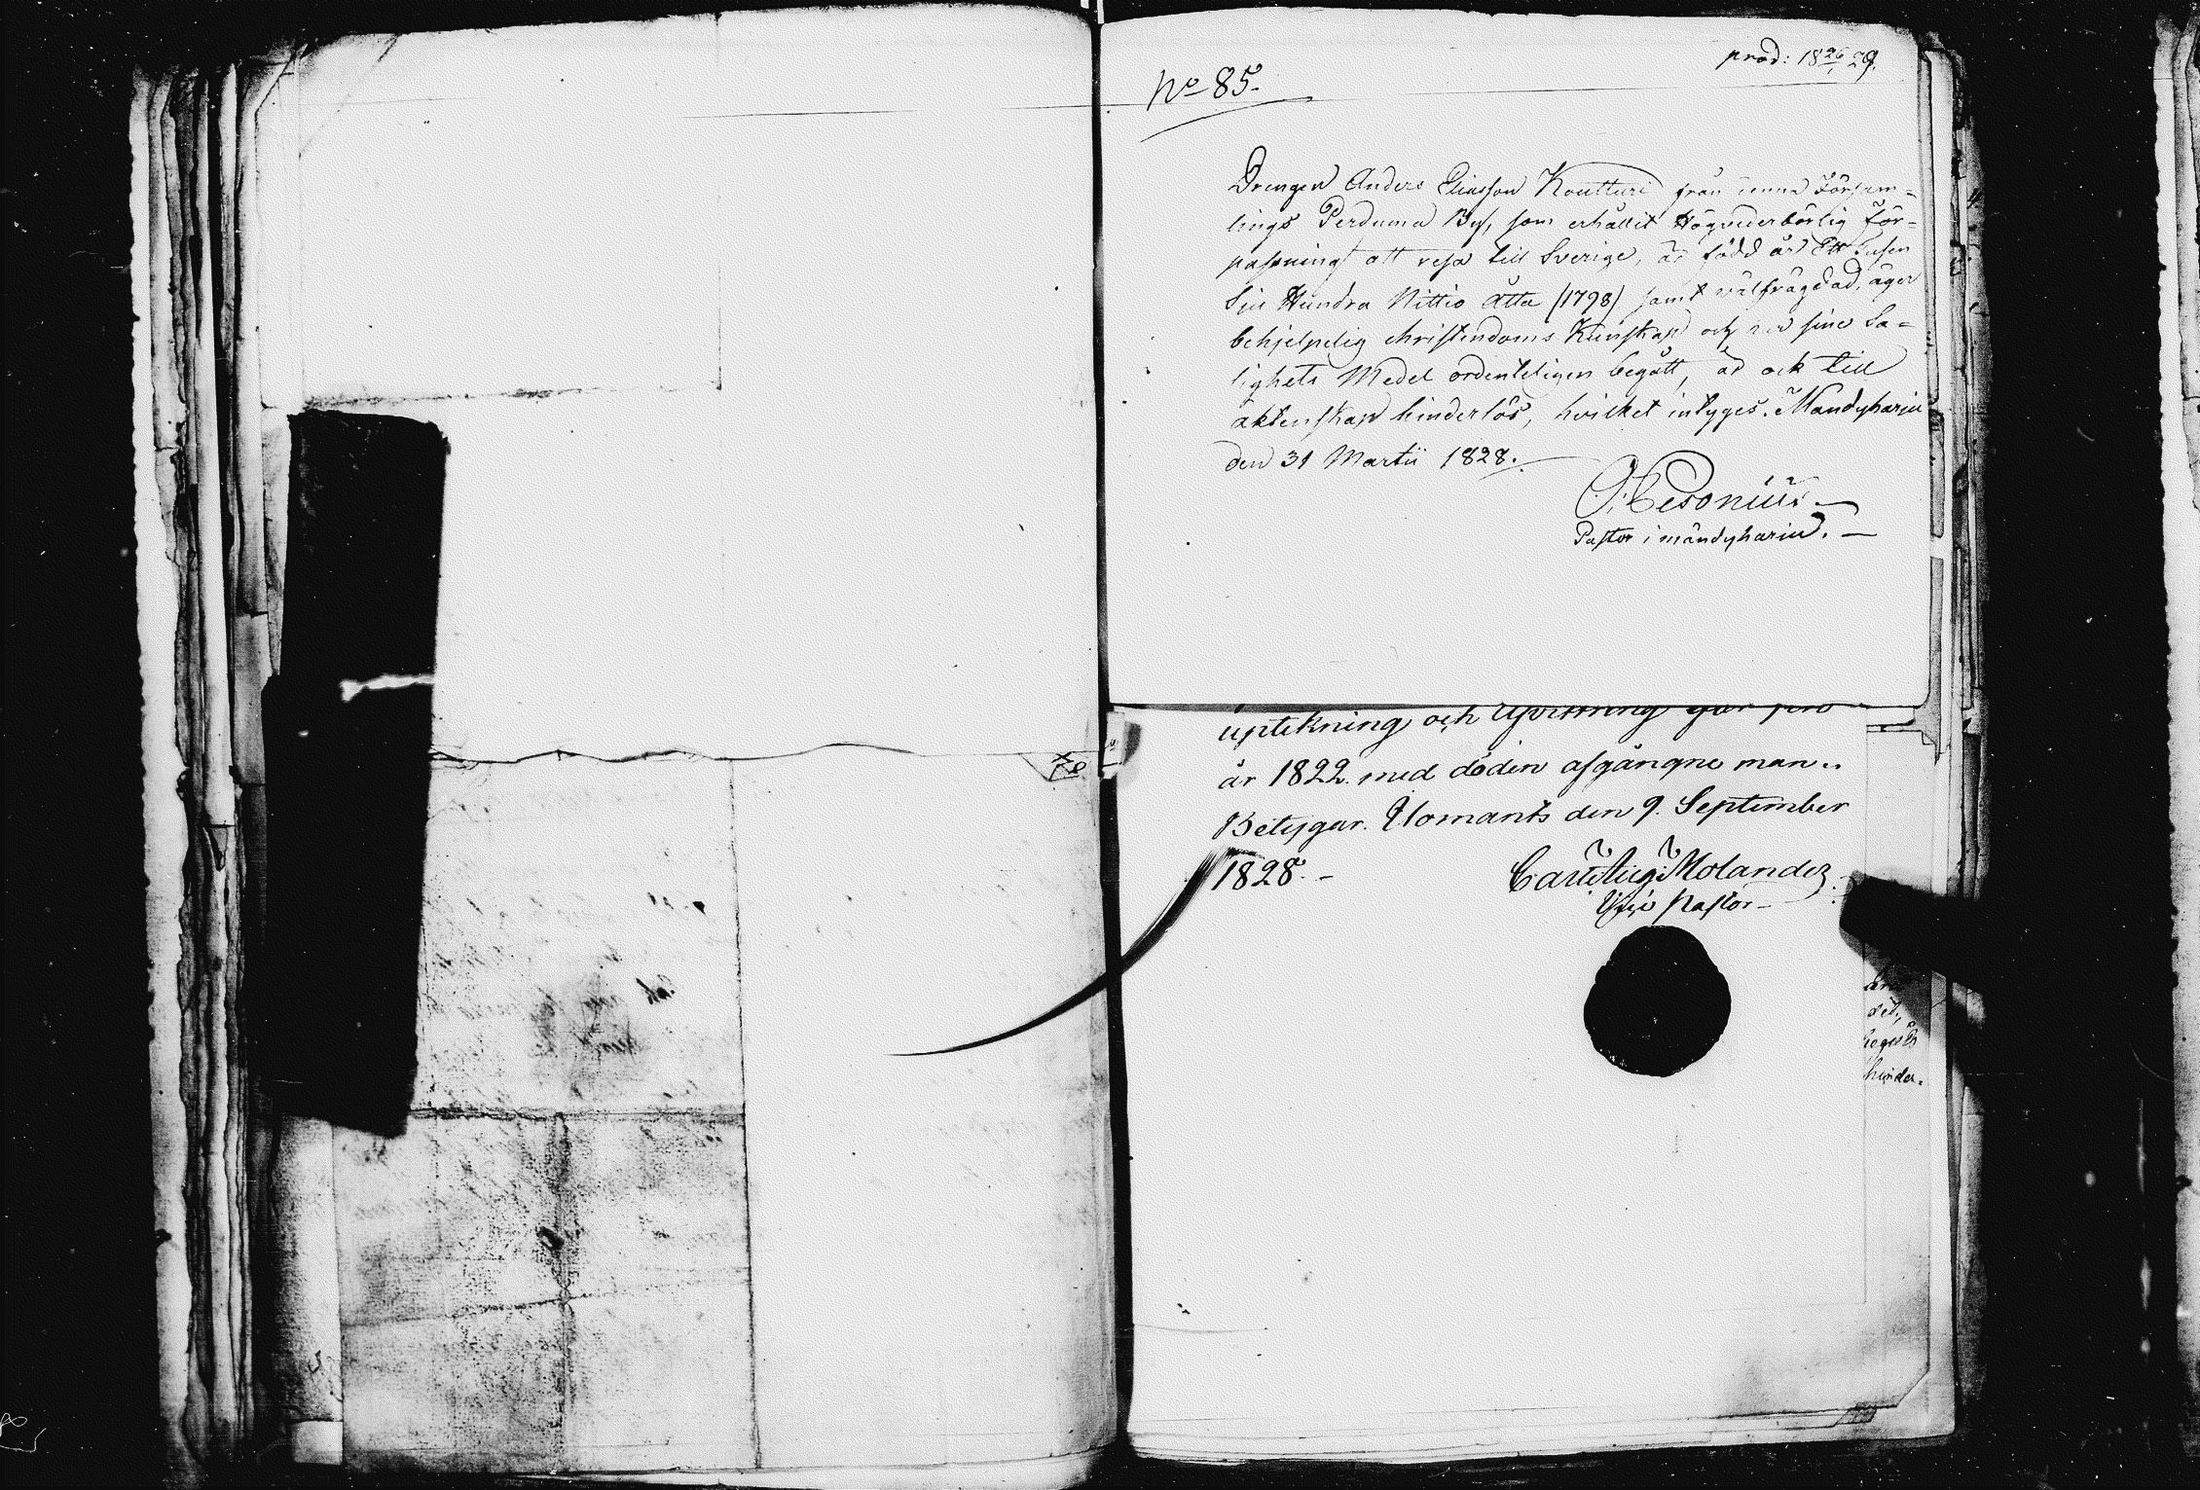 No 85.
prod: 18 26/1 29.
Drengen Anders Eliasson Koutturi från denna Försam-
lings Perduma By, som erhållit Högvederbörlig För-
passning att resa till Sverige, är född år Ett tusen
Sju Hundra Nittio Åtta (1798) samt välfrägdad, äger
behjelpelig christendoms Kunskap och sine Sa-
lighets Medel ordenteligen begått, är ock till
äktenskap hinderlös, hvilket intyges. Mändyharju
den 31 Martii 1828.
Cesonius
Pastor i mändyharju.
uptekning och
år 1822 med döden afgångne man..
Betygar. Ilomants den 9. September
1828. -
Carl Aug: Molander
Vice Pastor
ded,
hinder-